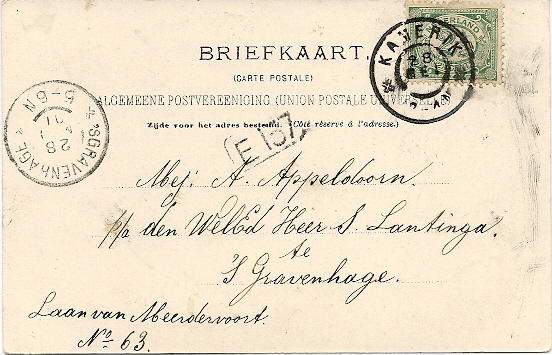 BRIEFKAART.
(CARTE POSTALE)
ALGEMEENE POSTVEREENIGING (UNION POSTALE UNIVERSELLE)
Zijde voor het adres bestemd. (Côté réservé à l'adresse.)
KAMERIK
28
'SGRAVENHAGE
28
5-6N
E 137
Mej: A. Appeldoorn.
p/a den WelEd Heer S. Lantinga.
te
'S Gravenhage.
Laan van Meerdervoort.
No 63.